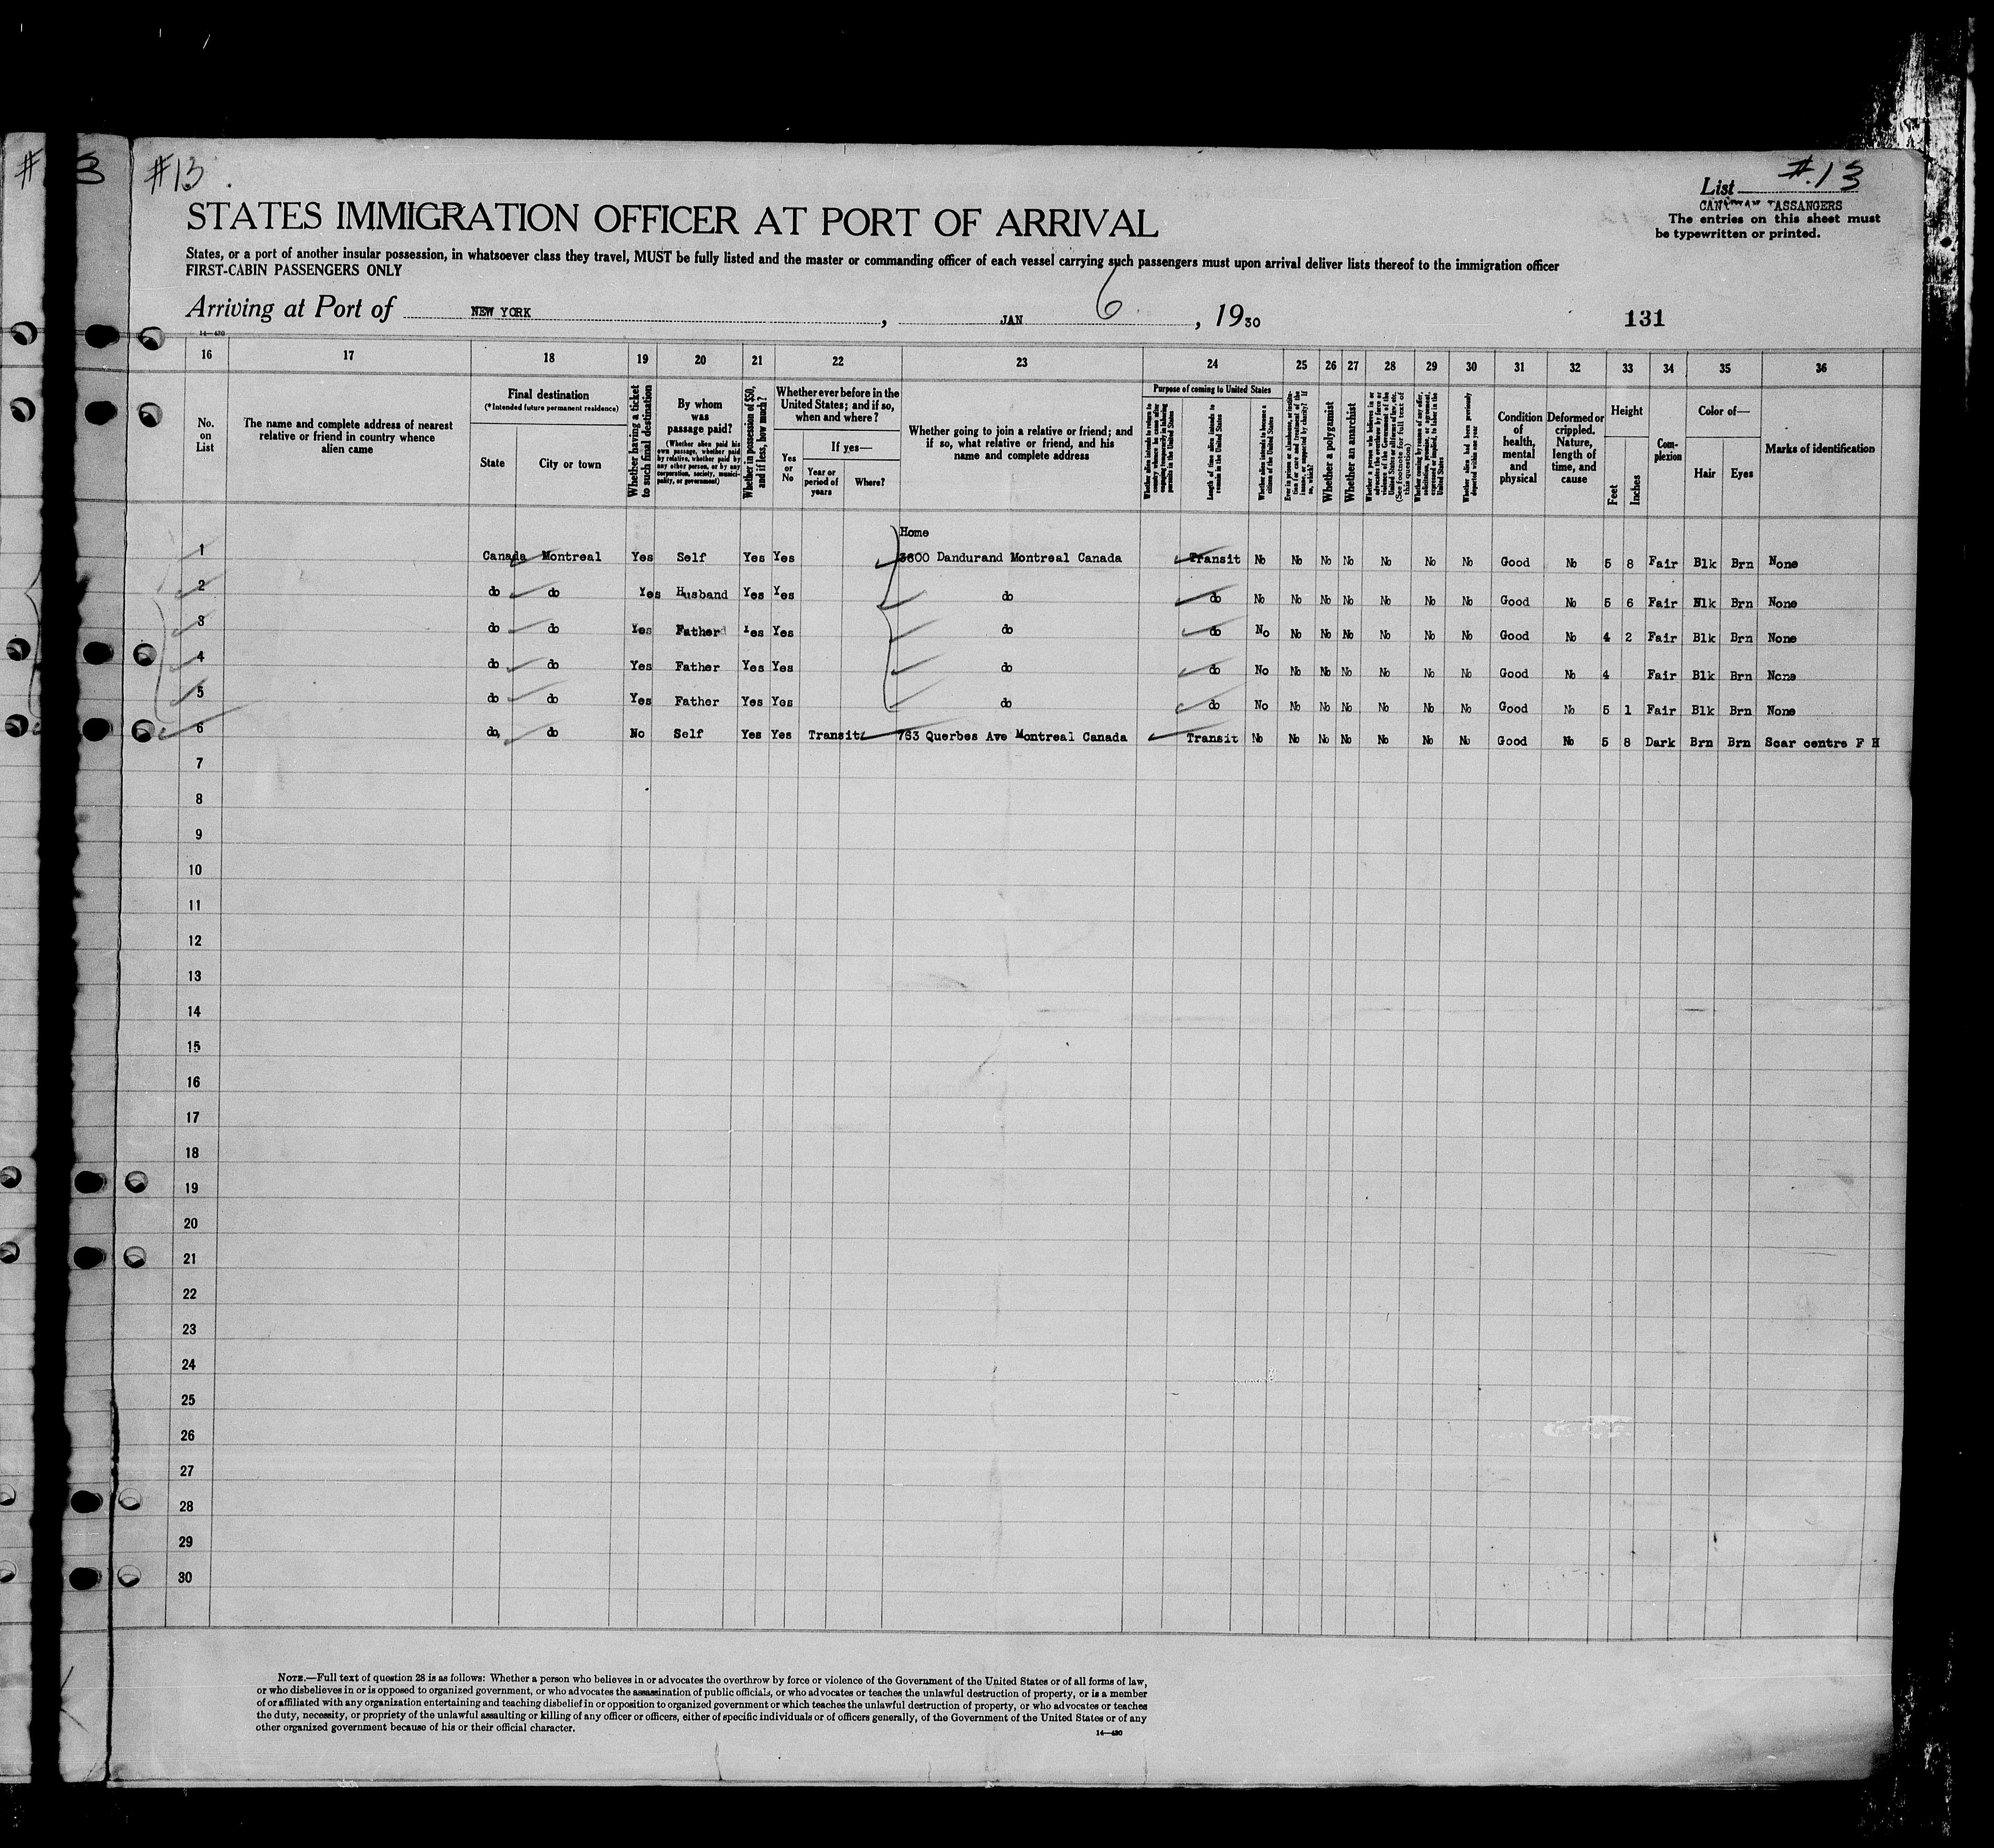 # 3 #13 .
List #.13
PASSENGERS
The entries on this sheet must
be typewritten or printed.
STATES IMMIGRATION OFFICER AT PORT OF ARRIVAL
States, or a port of another insular possession, in whatsoever class they travel, MUST be fully listed and the master or commanding officer of each vessel carrying such passengers must upon arrival deliver lists thereof to the immigration officer
FIRST-CABIN PASSENGERS ONLY
Arriving at Port of NEW YORK , JAN 6 , 1930 131
14—430
16 17 18 19 20 21 22 23 24 25 26 27 28 29 30 31 32 33 34 35 36
No.
on
List
The name and complete address of nearest
relative or friend in country whence
alien came
Final destination
(*Intended future permanent residence)
State
City or town
Whether having a ticket
to such final destination
By whom
was
passage paid?
(Whether alien paid his
own passage, whether paid
by relative, whether paid by
any other person, or by any
corporation, society, munici-
pality, or government)
Whether in possession of $50,
and if less, how much?
Whether ever before in the
United States; and if so,
when and where?
Yes
or
No
If yes—
Year or
period of
years
Where?
Whether going to join a relative or friend; and
if so, what relative or friend, and his
name and complete address
Purpose of coming to United States
Whether alien intends to return to
country whence he came after
engaging temporarily in laboring
pursuits in the United States
Length of time alien intends to
remain in the United States
Whether alien intends to become a
citizen of the United States
Ever in prison or almshouse, or institu-
tion for care and treatment of the
insane, or supported by charity? If
so, which?
Whether a polygamist
Whether an anarchist
Whether a person who believes in or
advocates the overthrow by force or
violence of the Government of the
United States or all forms of law, etc.
(See footnote for full text of
this question)
Whether coming by reason of any offer,
solicitation, promise, or agreement,
expressed or implied, to labor in the
United States
Whether alien had been previously
deported within one year
Condition
of
health,
mental
and
physical
Deformed or
crippled.
Nature,
length of
time, and
cause
Height
Feet
Inches
Com-
plexion
Color of—
Hair
Eyes
Marks of identification
Home
1 Canada Montreal Yes Self Yes Yes 3600 Dandurand Montreal Canada Transit No No No No No No No Good No 5 8 Fair Blk Brn None
2 do do Yes Husband Yes Yes do do No No No No No No No Good No 5 6 Fair Blk Brn None
3 do do Yes Father Yes Yes do do No No No No No No No Good No 4 2 Fair Blk Brn None
4 do do Yes Father Yes Yes do do No No No No No No No Good No 4 Fair Blk Brn None
5 do do Yes Father Yes Yes do do No No No No No No No Good No 5 1 Fair Blk Brn None
6 do, do No Self Yes Yes Transit 763 Querbes Ave Montreal Canada Transit No No No No No No No Good No 5 8 Dark Brn Brn Scar centre F H
7
8
9
10
11
12
13
14
15
16
17
18
19
20
21
22
23
24
25
26
27
28
29
30
NOTE.—Full text of question 28 is as follows: Whether a person who believes in or advocates the overthrow by force or violence of the Government of the United States or of all forms of law,
or who disbelieves in or is opposed to organized government, or who advocates the assassination of public officials, or who advocates or teaches the unlawful destruction of property, or is a member
of or affiliated with any organization entertaining and teaching disbelief in or opposition to organized government or which teaches the unlawful destruction of property, or who advocates or teaches
the duty, necessity, or propriety of the unlawful assaulting or killing of any officer or officers, either of specific individuals or of officers generally, of the Government of the United States or of any
other organized government because of his or their official character.
14—430